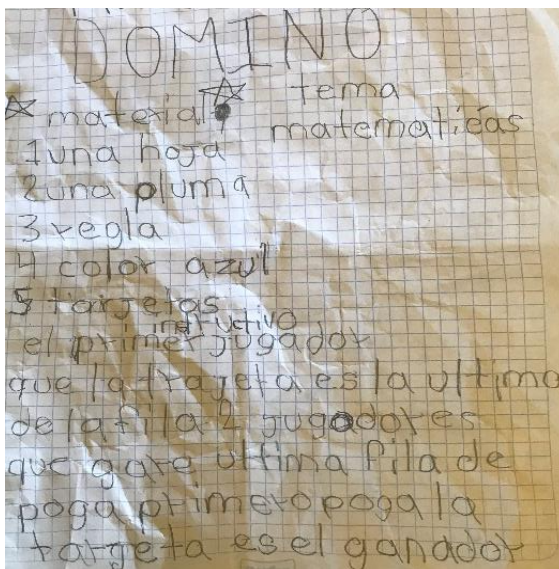 DOMINO
☆ material ☆ tema
matematicas
1 una hoja
2 una pluma
3 regla
4 color azul
5 tarjetas
instructivo
el primer jugador
que la trajeta es la ultima
de la fila 2 jugadores
que gare ultima fila de
poga primero poga la
tarjeta es el ganador